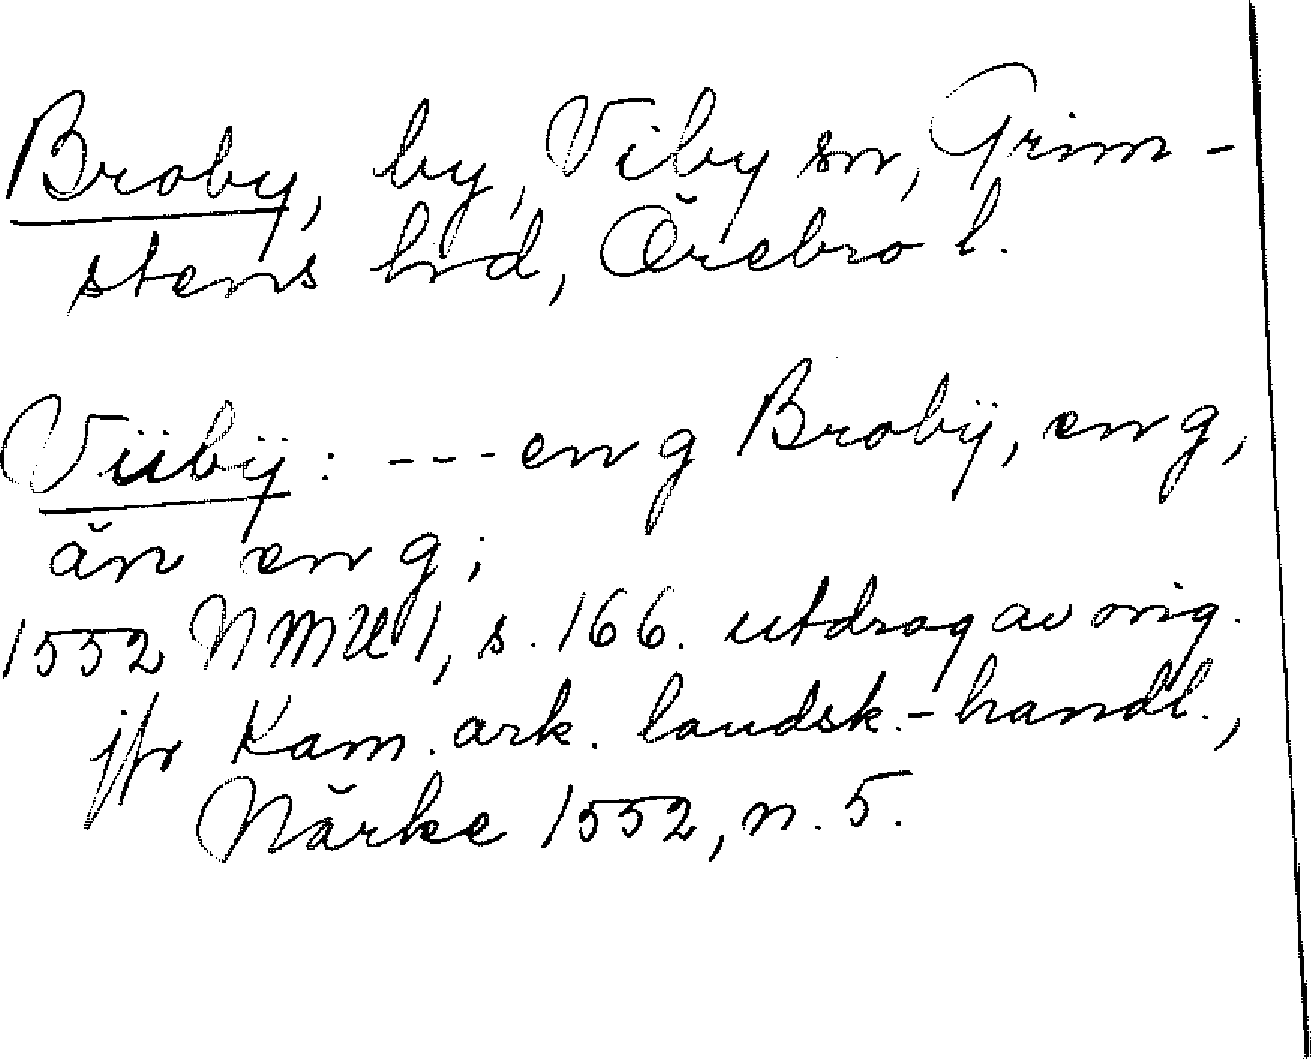 Broby, by, Viby sn, Grim-
stens hrd, Örebro l.
Viibÿ: --- en g Brobÿ, en g,
än en g;
1552 NMU 1, s. 166. utdrag av orig.
jfr Kam. ark. landsk.-handl.,
Närke 1552, n. 5.